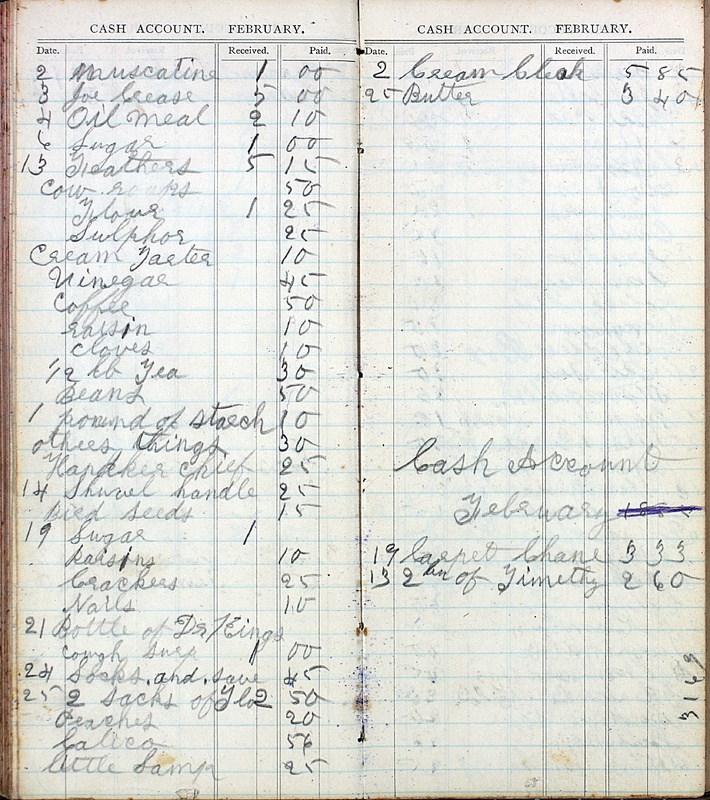 CASH ACCOUNT. FEBRUARY.
Date. Received. Paid.
2 Muscatine 1 00
3 Joe Crease 5 00
4 Oil meal 2 10
6 Sugar 1 00
13 Feathers 5 15
Cow 50
Flour 1 25
Sulphor 25
Cream Tarter 10
Vinegar 45
Coffee 50
raisin 10
Cloves 10
1/2 lb Tea 30
Beans 50
1 pound of starch 10
others things 30
Handker chief 25
14 Shuvel handle 25
bird seeds 15
19 Sugar 1
Raisins 10
Crackers 25
Nails 10
21 Bottle of Dr Kings
Cough 1 00
24 Socks and 45
25 2 Sacks of Flo 2 50
Peaches 20
Calico 56
little Lamp 25
CASH ACCOUNT. FEBRUARY.
Date. Received. Paid.
2 Cream Check 5 85
25 Butter 3 40
Cash Account
February
19 Carpet Chane 3 33
13 2 of Timethy 2 60
3169